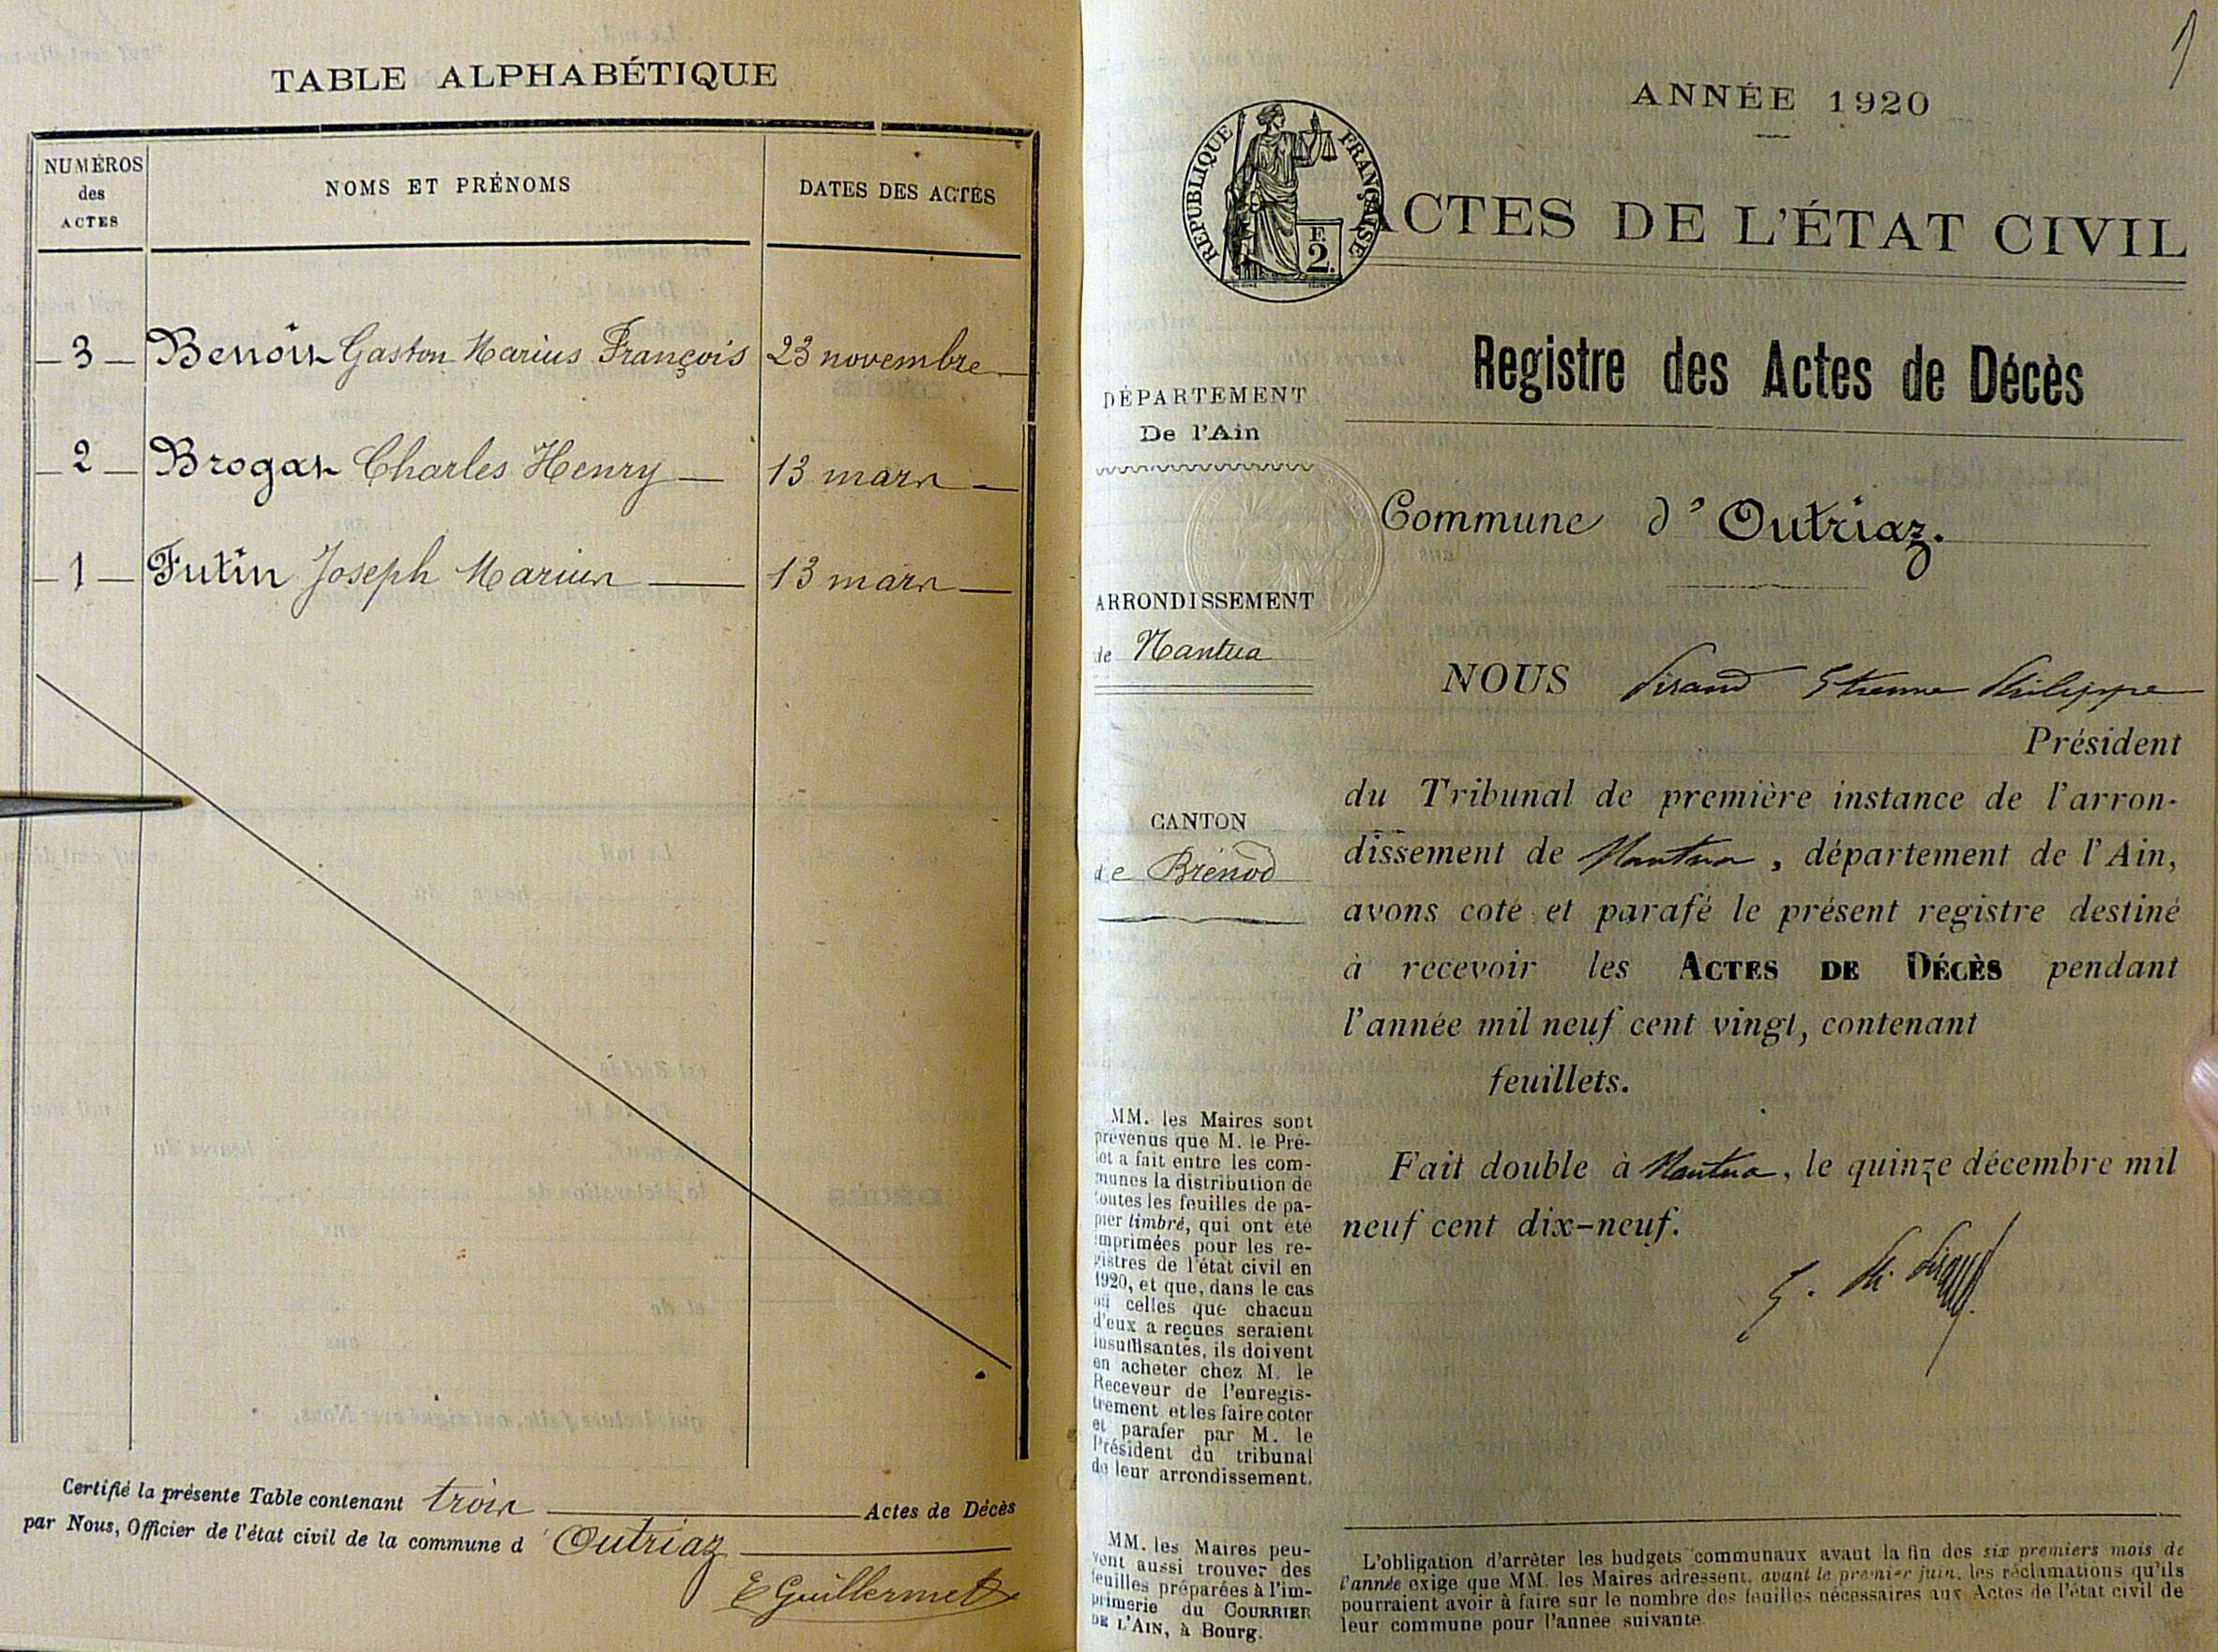 TABLE ALPHABÉTIQUE
NUMÉROS
des
ACTES
NOMS ET PRÉNOMS
DATES DES ACTES
3 Benoit Gaston Marius François 23 novembre
2 Brogat Charles Henry 13 mars
1 Futin Joseph Marius 13 mars
Certifié la présente Table contenant trois Actes de Décès
par Nous, Officier de l'état civil de la commune d'Outriaz
E Guillermet
1
ANNÉE 1920
RÉPUBLIQUE FRANÇAISE
2.
ACTES DE L'ÉTAT CIVIL
Registre des Actes de Décès
DÉPARTEMENT
De l'Ain
Commune d'Outriaz.
ARRONDISSEMENT
de Nantua
CANTON
de Brénod
MM. les Maires sont
prévenus que M. le Pré-
fet a fait entre les com-
munes la distribution de
toutes les feuilles de pa-
pier timbré, qui ont été
imprimées pour les re-
gistres de l'état civil en
1920, et que, dans le cas
où celles que chacun
d'eux a reçues seraient
insuffisantes, ils doivent
en acheter chez M. le
Receveur de l'enregis-
trement et les faire coter
et parafer par M. le
Président du tribunal
de leur arrondissement.
MM. les Maires peu-
vent aussi trouver des
feuilles préparées à l'im-
primerie du COURRIER
DE L'AIN, à Bourg.
NOUS Etienne Philippe
Président
du Tribunal de première instance de l'arron-
dissement de Nantua, département de l'Ain,
avons coté et parafé le présent registre destiné
à recevoir les ACTES DE DÉCÈS pendant
l'année mil neuf cent vingt, contenant
feuillets.
Fait double à Nantua, le quinze décembre mil
neuf cent dix-neuf.
L'obligation d'arrêter les budgets communaux avant la fin des six premiers mois de
l'année exige que MM. les Maires adressent, avant le premier juin, les réclamations qu'ils
pourraient avoir à faire sur le nombre des feuilles nécessaires aux Actes de l'état civil de
leur commune pour l'année suivante.